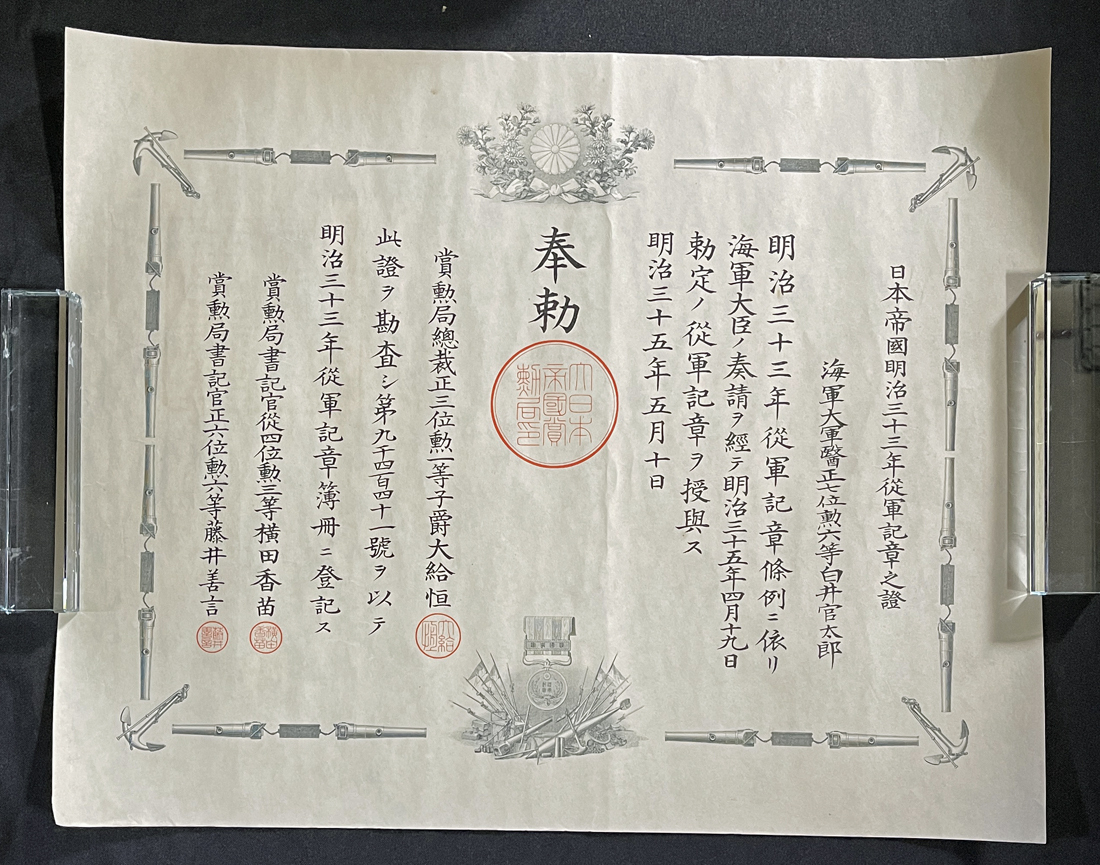 日本帝國明治三十三年從軍記章之證
海軍大軍醫正七位勲六等白井官太郎
明治三十三年從軍記章條例ニ依リ
海軍大臣ノ奏請ヲ經テ明治三十五年四月十九日
勅定ノ從軍記章ヲ授與ス
明治三十五年五月十日
奉勅
大日本
帝國賞
勲局印
賞勲局總裁正三位勲一等子爵大給恒
大給
恒
此證ヲ勘査シ第九千四百四十一號ヲ以テ
明治三十三年從軍記章簿冊ニ登記ス
賞勲局書記官從四位勲三等横田香苗
横田
香苗
賞勲局書記官正六位勲六等藤井善言
藤井
善言